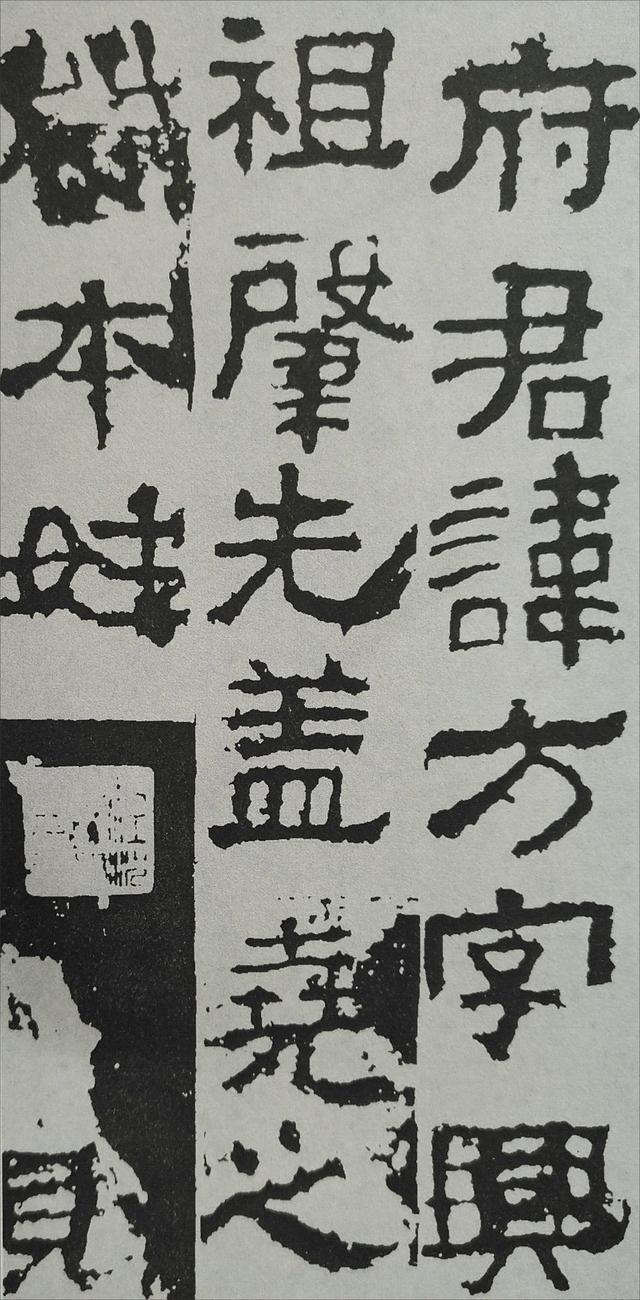 府君諱方字興
祖肇先盖堯之
本姓